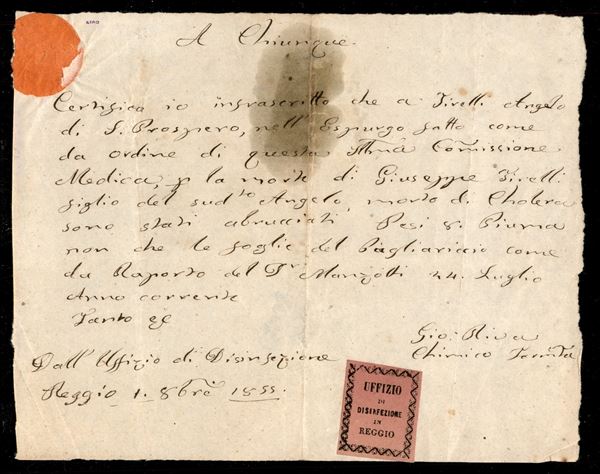 A Chiunque
Certifico io infrascritto che a Tirelli Angelo
di S. Prospero, nell' Espurgo fatto come
da ordine di questa Ill͞ma Comissione
Medica, p la morte di Giuseppe Tirelli
figlio del sud.to Angelo, morto di Cholera
sono stati abrucciati Pesi 8. Piuma
non che le foglie del Pagliariccio come
da Raporto del Sr. Manzotti 24. Luglio
Anno corrente
Tanto &c
Gio: Riva
Chimico Farm.ta
Dall' Uffizio di Disinfezione
Reggio 1. 8bre 1855.
UFFIZIO
DI
DISINFEZIONE
IN
REGGIO